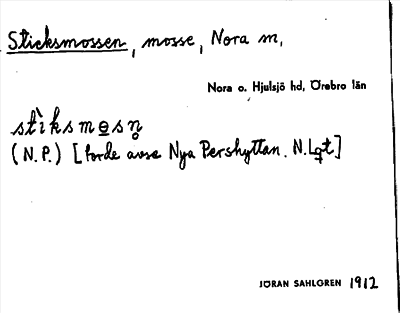 Sticksmossen, mosse, Nora m,
Nora o. Hjulsjö hd, Örebro län
stìksmosn̥
(N.P.) [torde avse Nya Pershyttan. N.Lgt]
JÖRAN SAHLGREN 1912